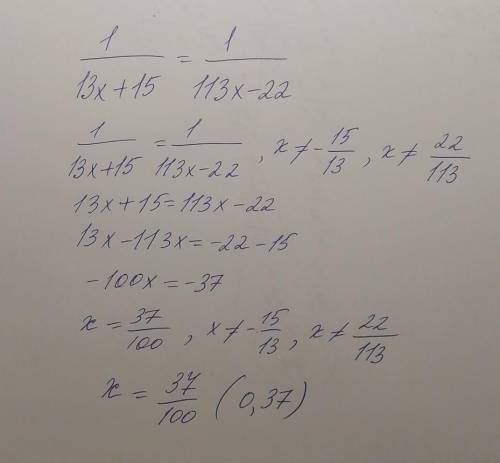 1/(13x+15) = 1/(113x-22)
1/(13x+15) = 1/(113x-22) , x ≠ -15/13 , x ≠ 22/113
13x+15=113x-22
13x-113x=-22-15
-100x=-37
x = 37/100 , x ≠ -15/13 , x ≠ 22/113
x = 37/100 (0,37)